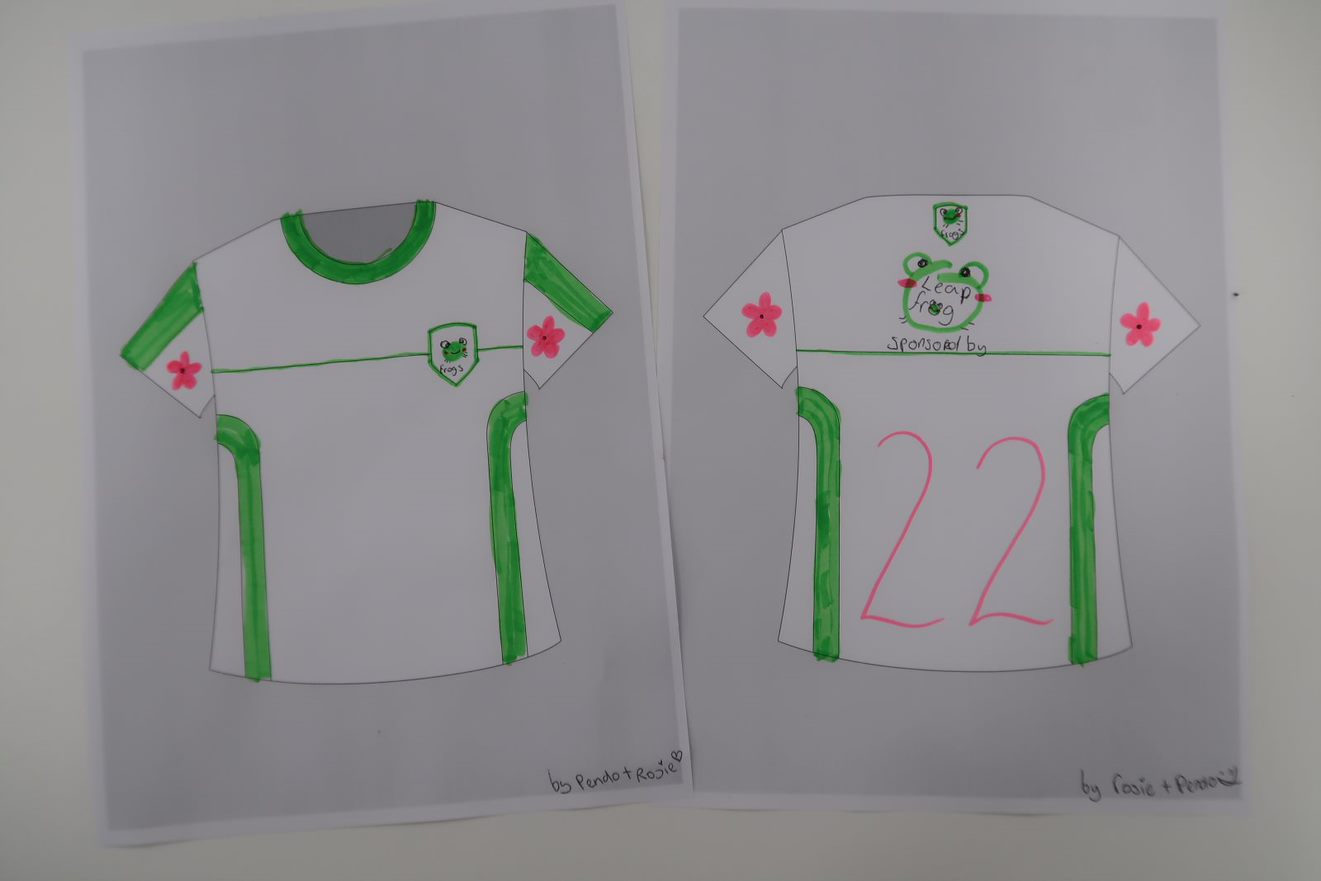 frogs
by Pendo + Rosie
frogs
Leap
frog
Sponsored by
22
by rosie + Pendo